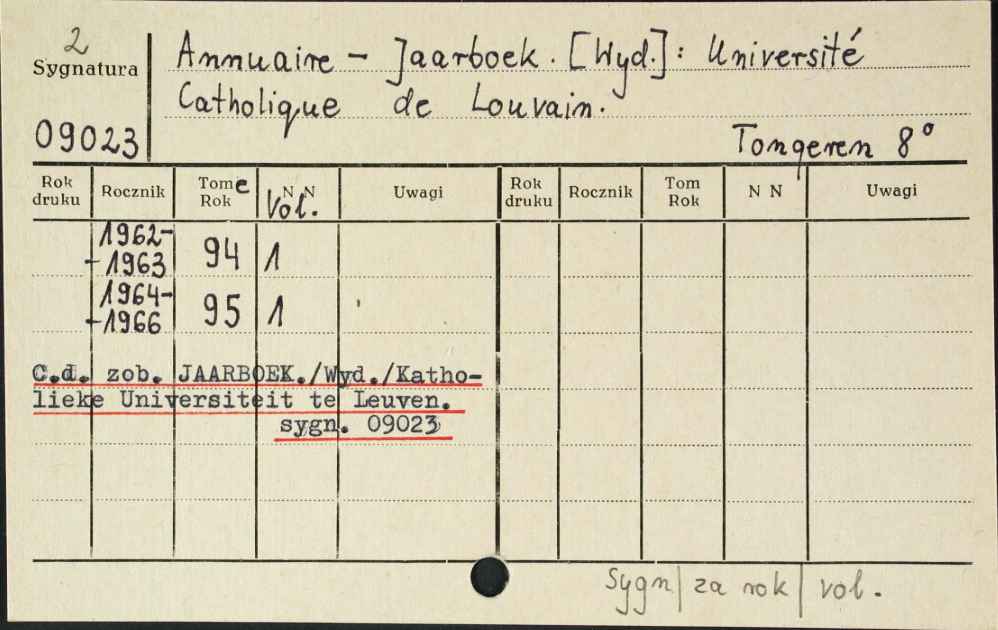 2
Sygnatura
09023
Annuaire - Jaarboek. [Wyd.]: Université
Catholique de Louvain.
Tongeren 8°
Rok druku Rocznik Tome Rok N N Vol. Uwagi Rok druku Rocznik Tom Rok N N Uwagi
1962-
-1963 94 1
1964-
-1966 95 1
C.d. zob. JAARBOEK./Wyd./Katho-
lieke Universiteit te Leuven.
sygn. 09023
Sygn/ za rok/ vol.